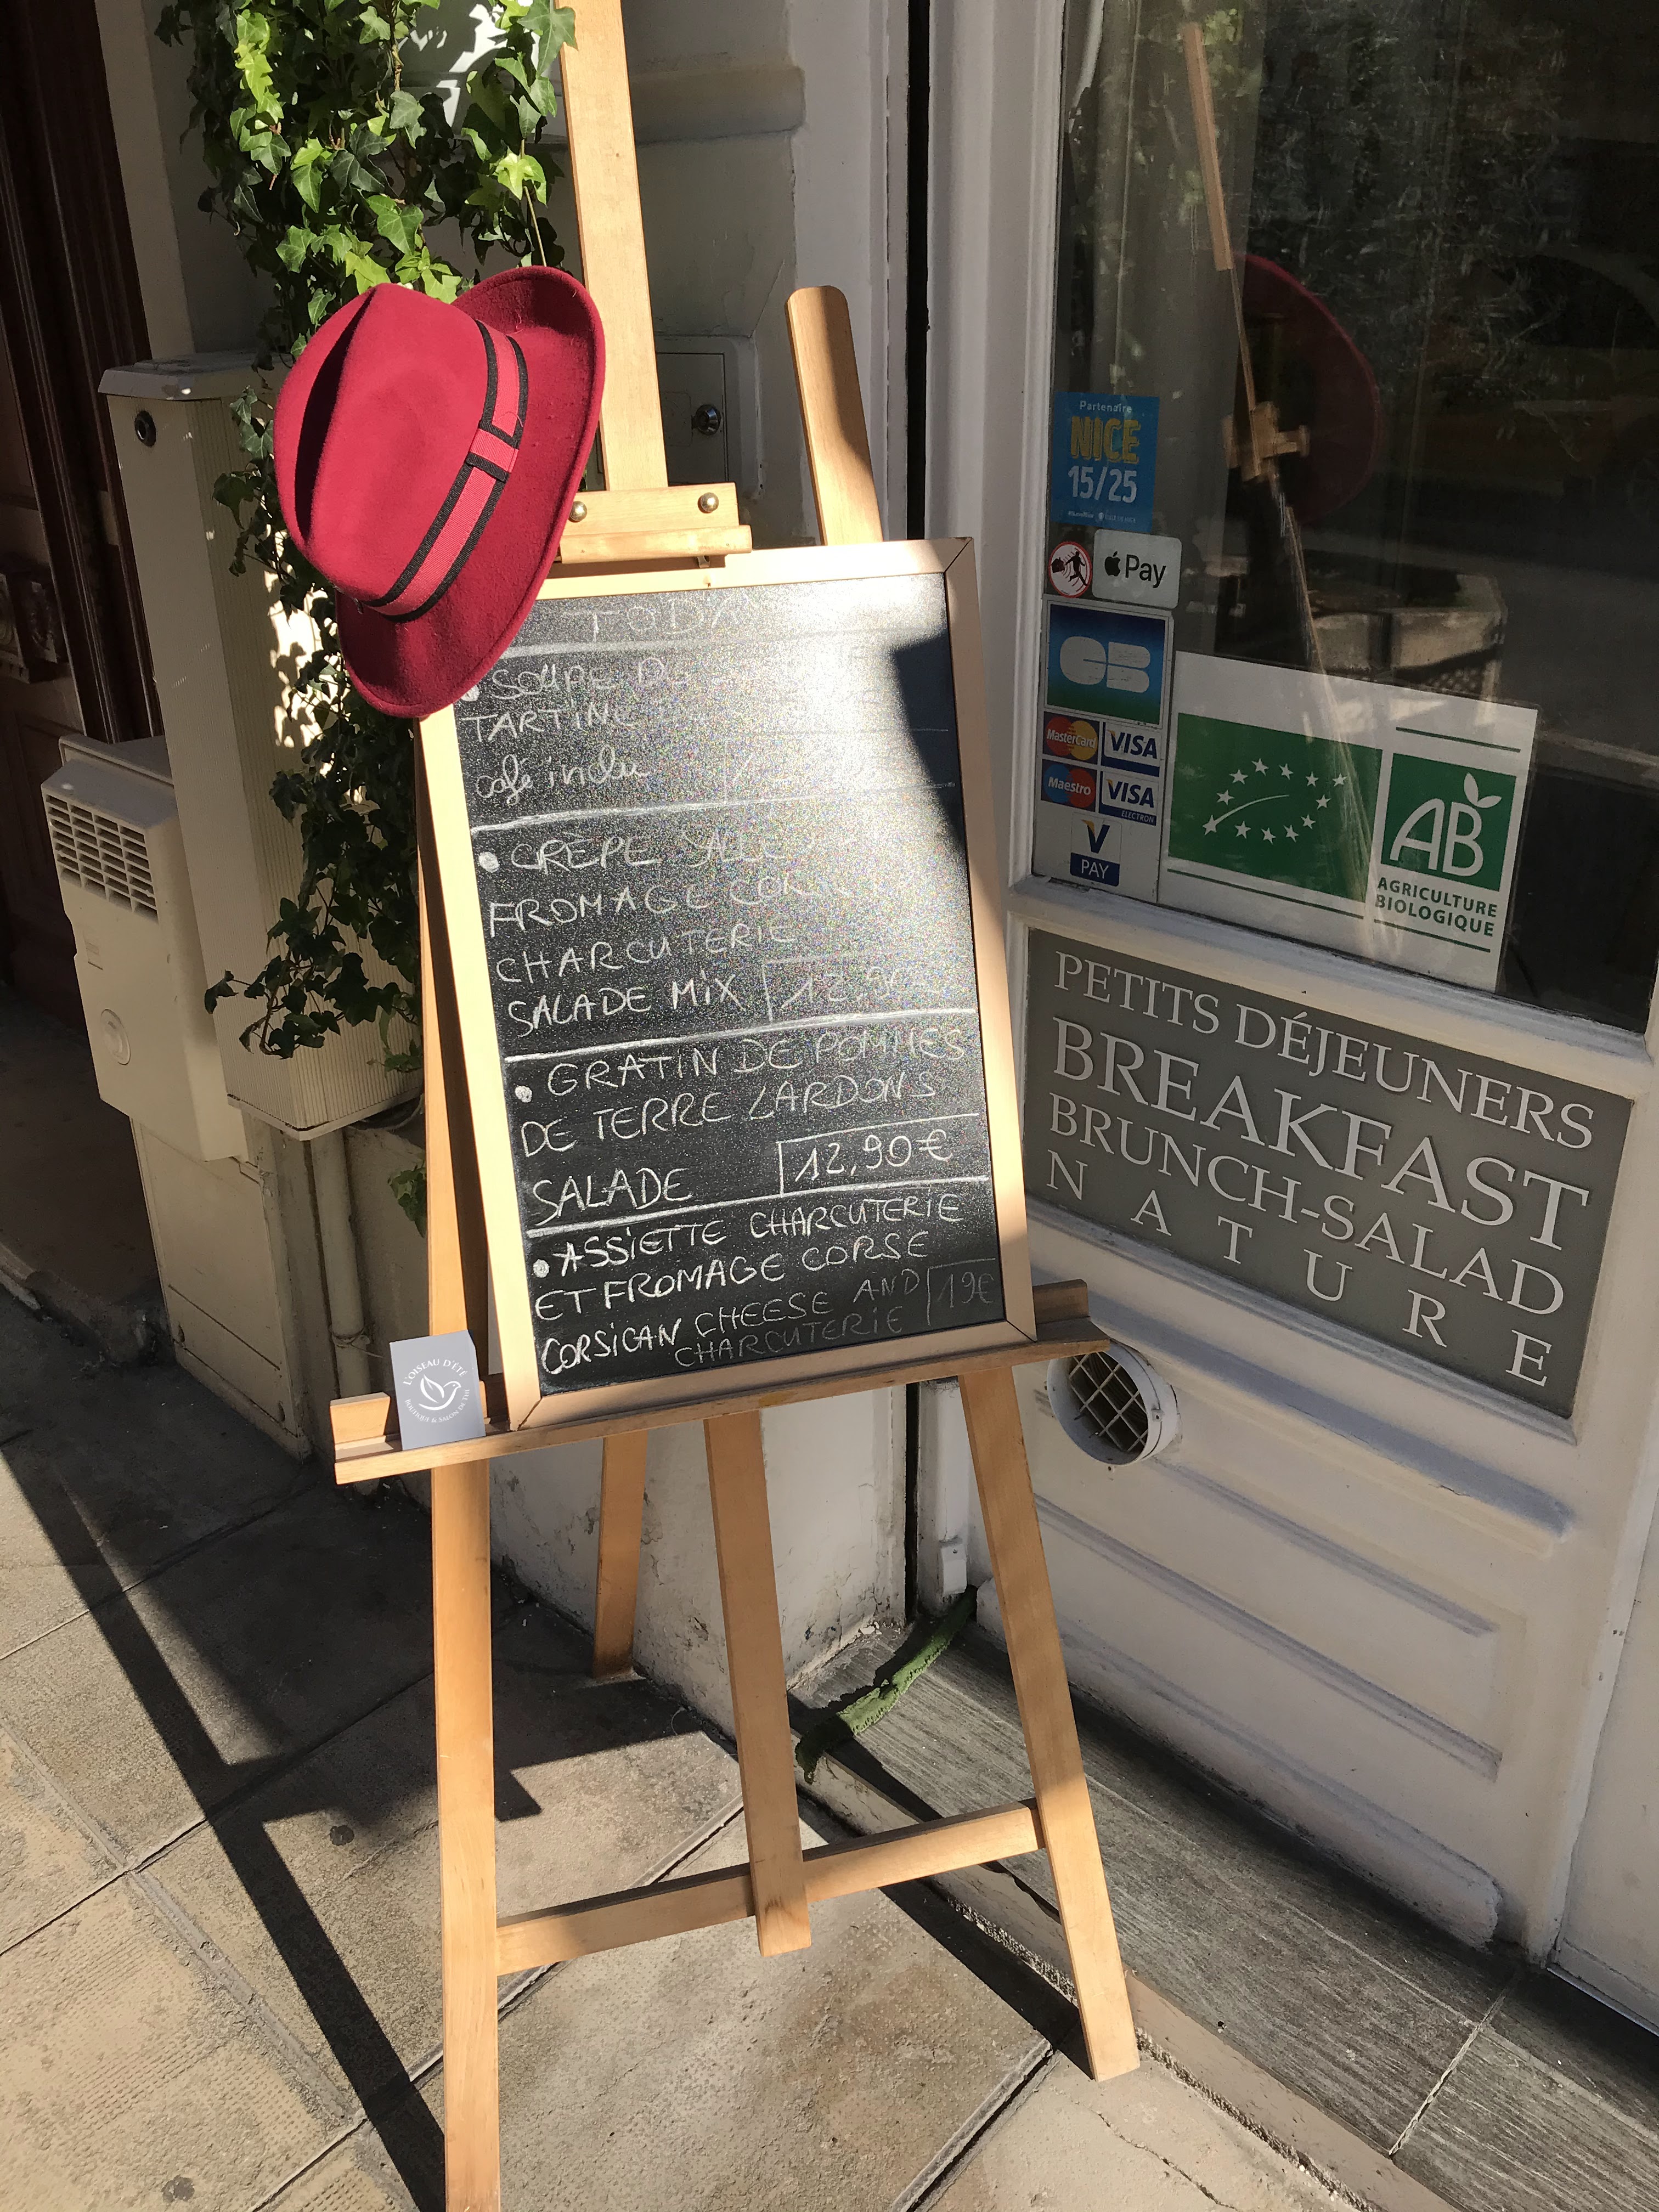 TODA
SOUPE D
TARTINE
café inclu
CRÊPE SALLÉE
FROMAGE CORSE
CHARCUTERIE
SALADE MIX
GRATIN DE POMMES
DE TERRE LARDONS
SALADE 12,90€
ASSIETTE CHARCUTERIE
ET FROMAGE CORSE
CORSICAN CHEESE AND 19€
CHARCUTERIE
L'OISEAU D'ÉTÉ
BOUTIQUE & SALON DE THÉ
Partenaire
NICE
15/25
Pay
CB
MasterCard VISA
Maestro VISA
ELECTRON
V
PAY
AB
AGRICULTURE
BIOLOGIQUE
PETITS DÉJEUNERS
BREAKFAST
BRUNCH-SALAD
NATURE